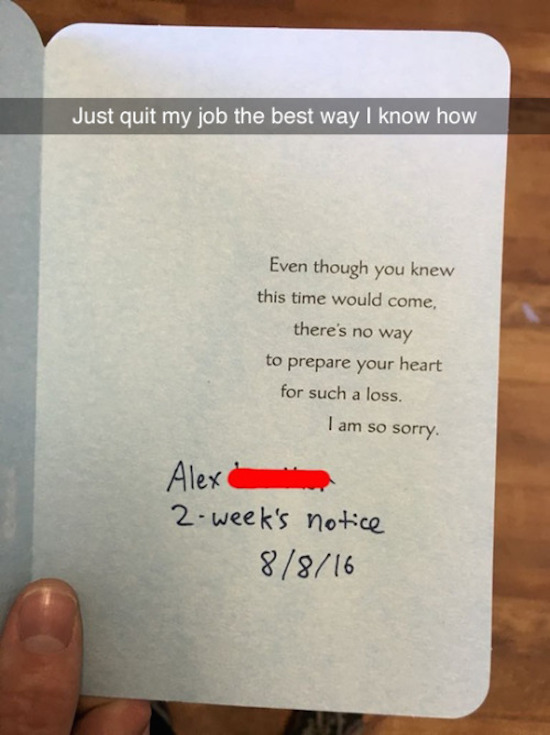 Just quit my job the best way I know how
Even though you knew
this time would come,
there's no way
to prepare your heart
for such a loss.
I am so sorry.
Alex
2-week's notice
8/8/16